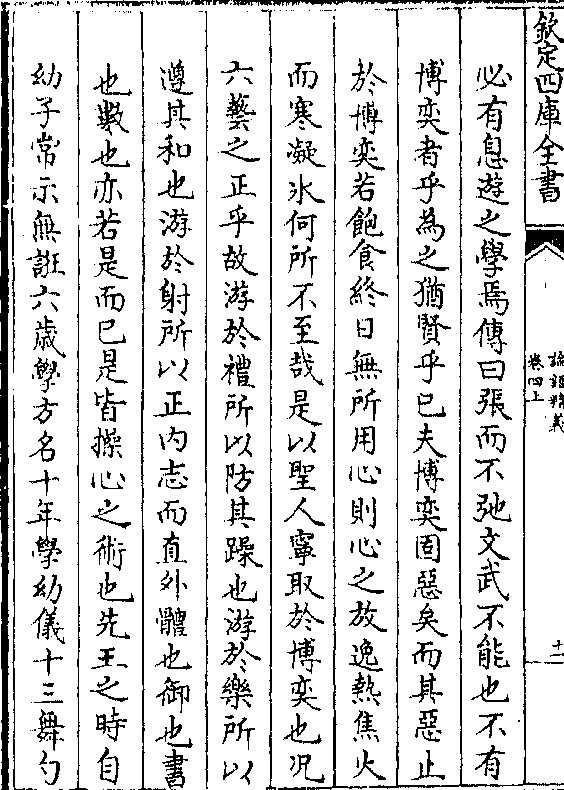 欽定四庫全書
論語精義
卷四上
十一
必有息遊之學焉傳曰張而不弛文武不能也不有
博奕者乎為之猶賢乎已夫博奕固惡矣而其惡止
於博奕若飽食終日無所用心則心之放逸熱焦火
而寒凝氷何所不至哉是以聖人寧取於博奕也况
六藝之正乎故游於禮所以防其躁也游於樂所以
導其和也游於射所以正内志而直外體也御也書
也數也亦若是而已是皆操心之術也先王之時自
幼子常示無誑六歲學方名十年學幼儀十三舞勺